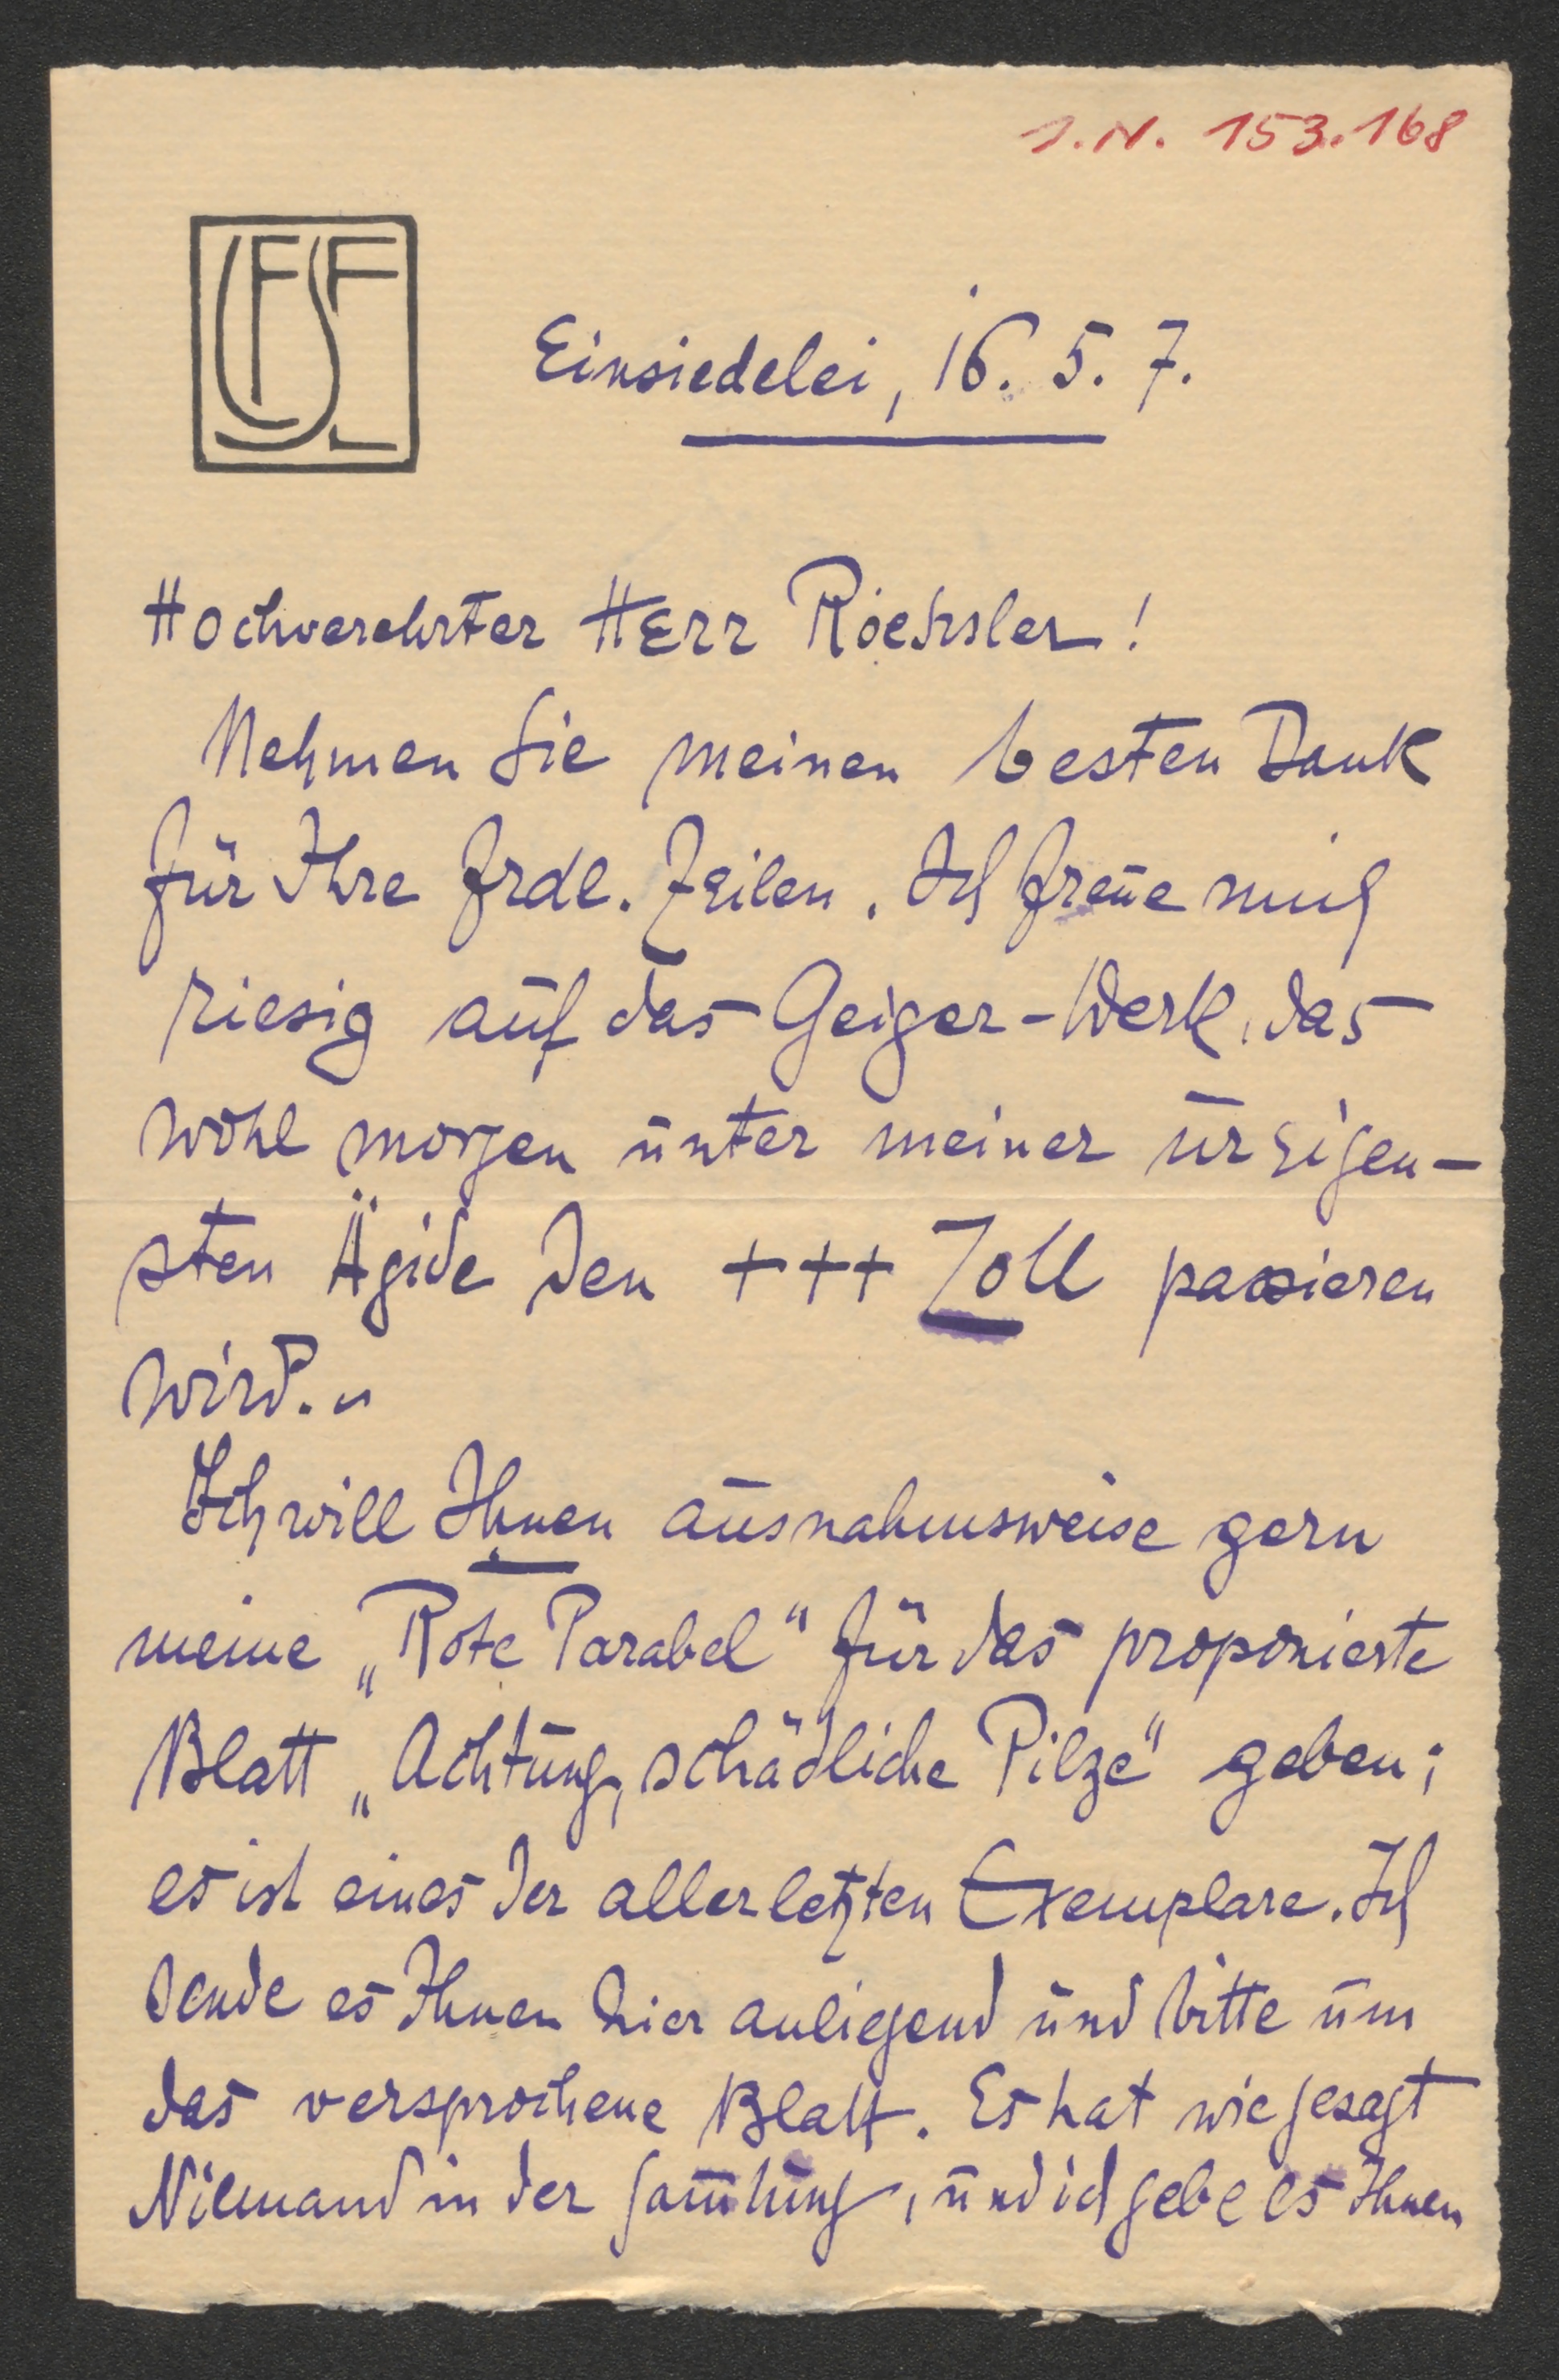 I.N. 153.168
Einsiedelei, 16. 5. 7.
Hochverehrter Herr Roessler!
Nehmen Sie meinen besten Dank
für Ihre frdl. Zeilen. Ich freue mich
riesig auf das Geiger-Werk, das
wohl morgen unter meiner ureigen-
sten Ägide den +++ Zoll passieren
wird. 
Ich will Ihnen ausnahmsweise gern
meine „Rote Parabel“ für das proponierte
Blatt „Achtung, schädliche Pilze“ geben;
es ist eines der allerletzten Exemplare. Ich
sende es Ihnen hier anliegend und bitte um
das versprochene Blatt. Es hat wie gesagt
Niemand in der Sam̄lung, und ich gebe es Ihnen